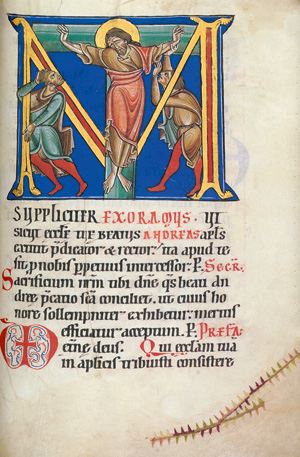 M
SUPPLICITER EXORAMUS. UT
sicut eccle tue beatus ANDREAS apls
extitit p̄dicator & rector. ita apud te
sit p nobis ppetuus intercessor. P. SECR.
Sacrificium nrm tibi dn̄e qs beati an
dree p̄catio sc̄a conciliet. ut cuius ho
nore sollempniter exhibetur. meritis
efficiatur acceptum. P. PREFA.
eterne deus. Qui ecclam tuam
in aplicis tribuisti consistere